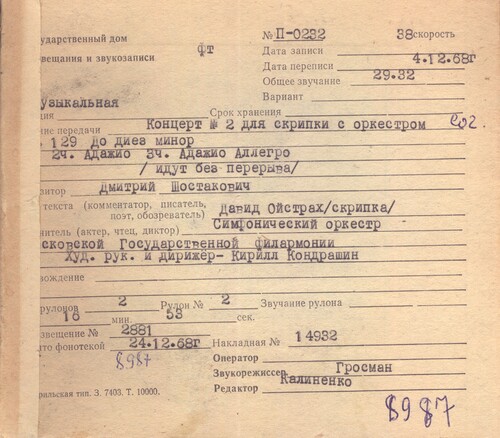 сударственный дом № П-0232 38 скорость
вещания и звукозаписи фт Дата записи
Дата переписи 4.12.68г
Общее звучание 29.32
Вариант
узыкальная
ция Срок хранения
ние передачи Концерт № 2 для скрипки с оркестром
129 До диез минор
2ч. Адажио 3ч. Адажио Аллегро
/ идут без перерыва/
зитор Дмитрий Шостакович
текста (комментатор, писатель,
поэт, обозреватель) Давид Ойстрах/скрипка/
нитель (актер, чтец, диктор) Симфонический оркестр
сковской Государственной филармонии
Худ. рук. и дирижёр- Кирилл Кондрашин
вождение
рулонов 2 Рулон № 2 Звучание рулона
16 мин. 53 сек.
звещение № 2881
ято фонотекой 24.12.68г Накладная № 14932
8987 Оператор
Звукорежиссер Гросман
Редактор Калиненко
рильская тип. З. 7403. Т. 10000.
8987